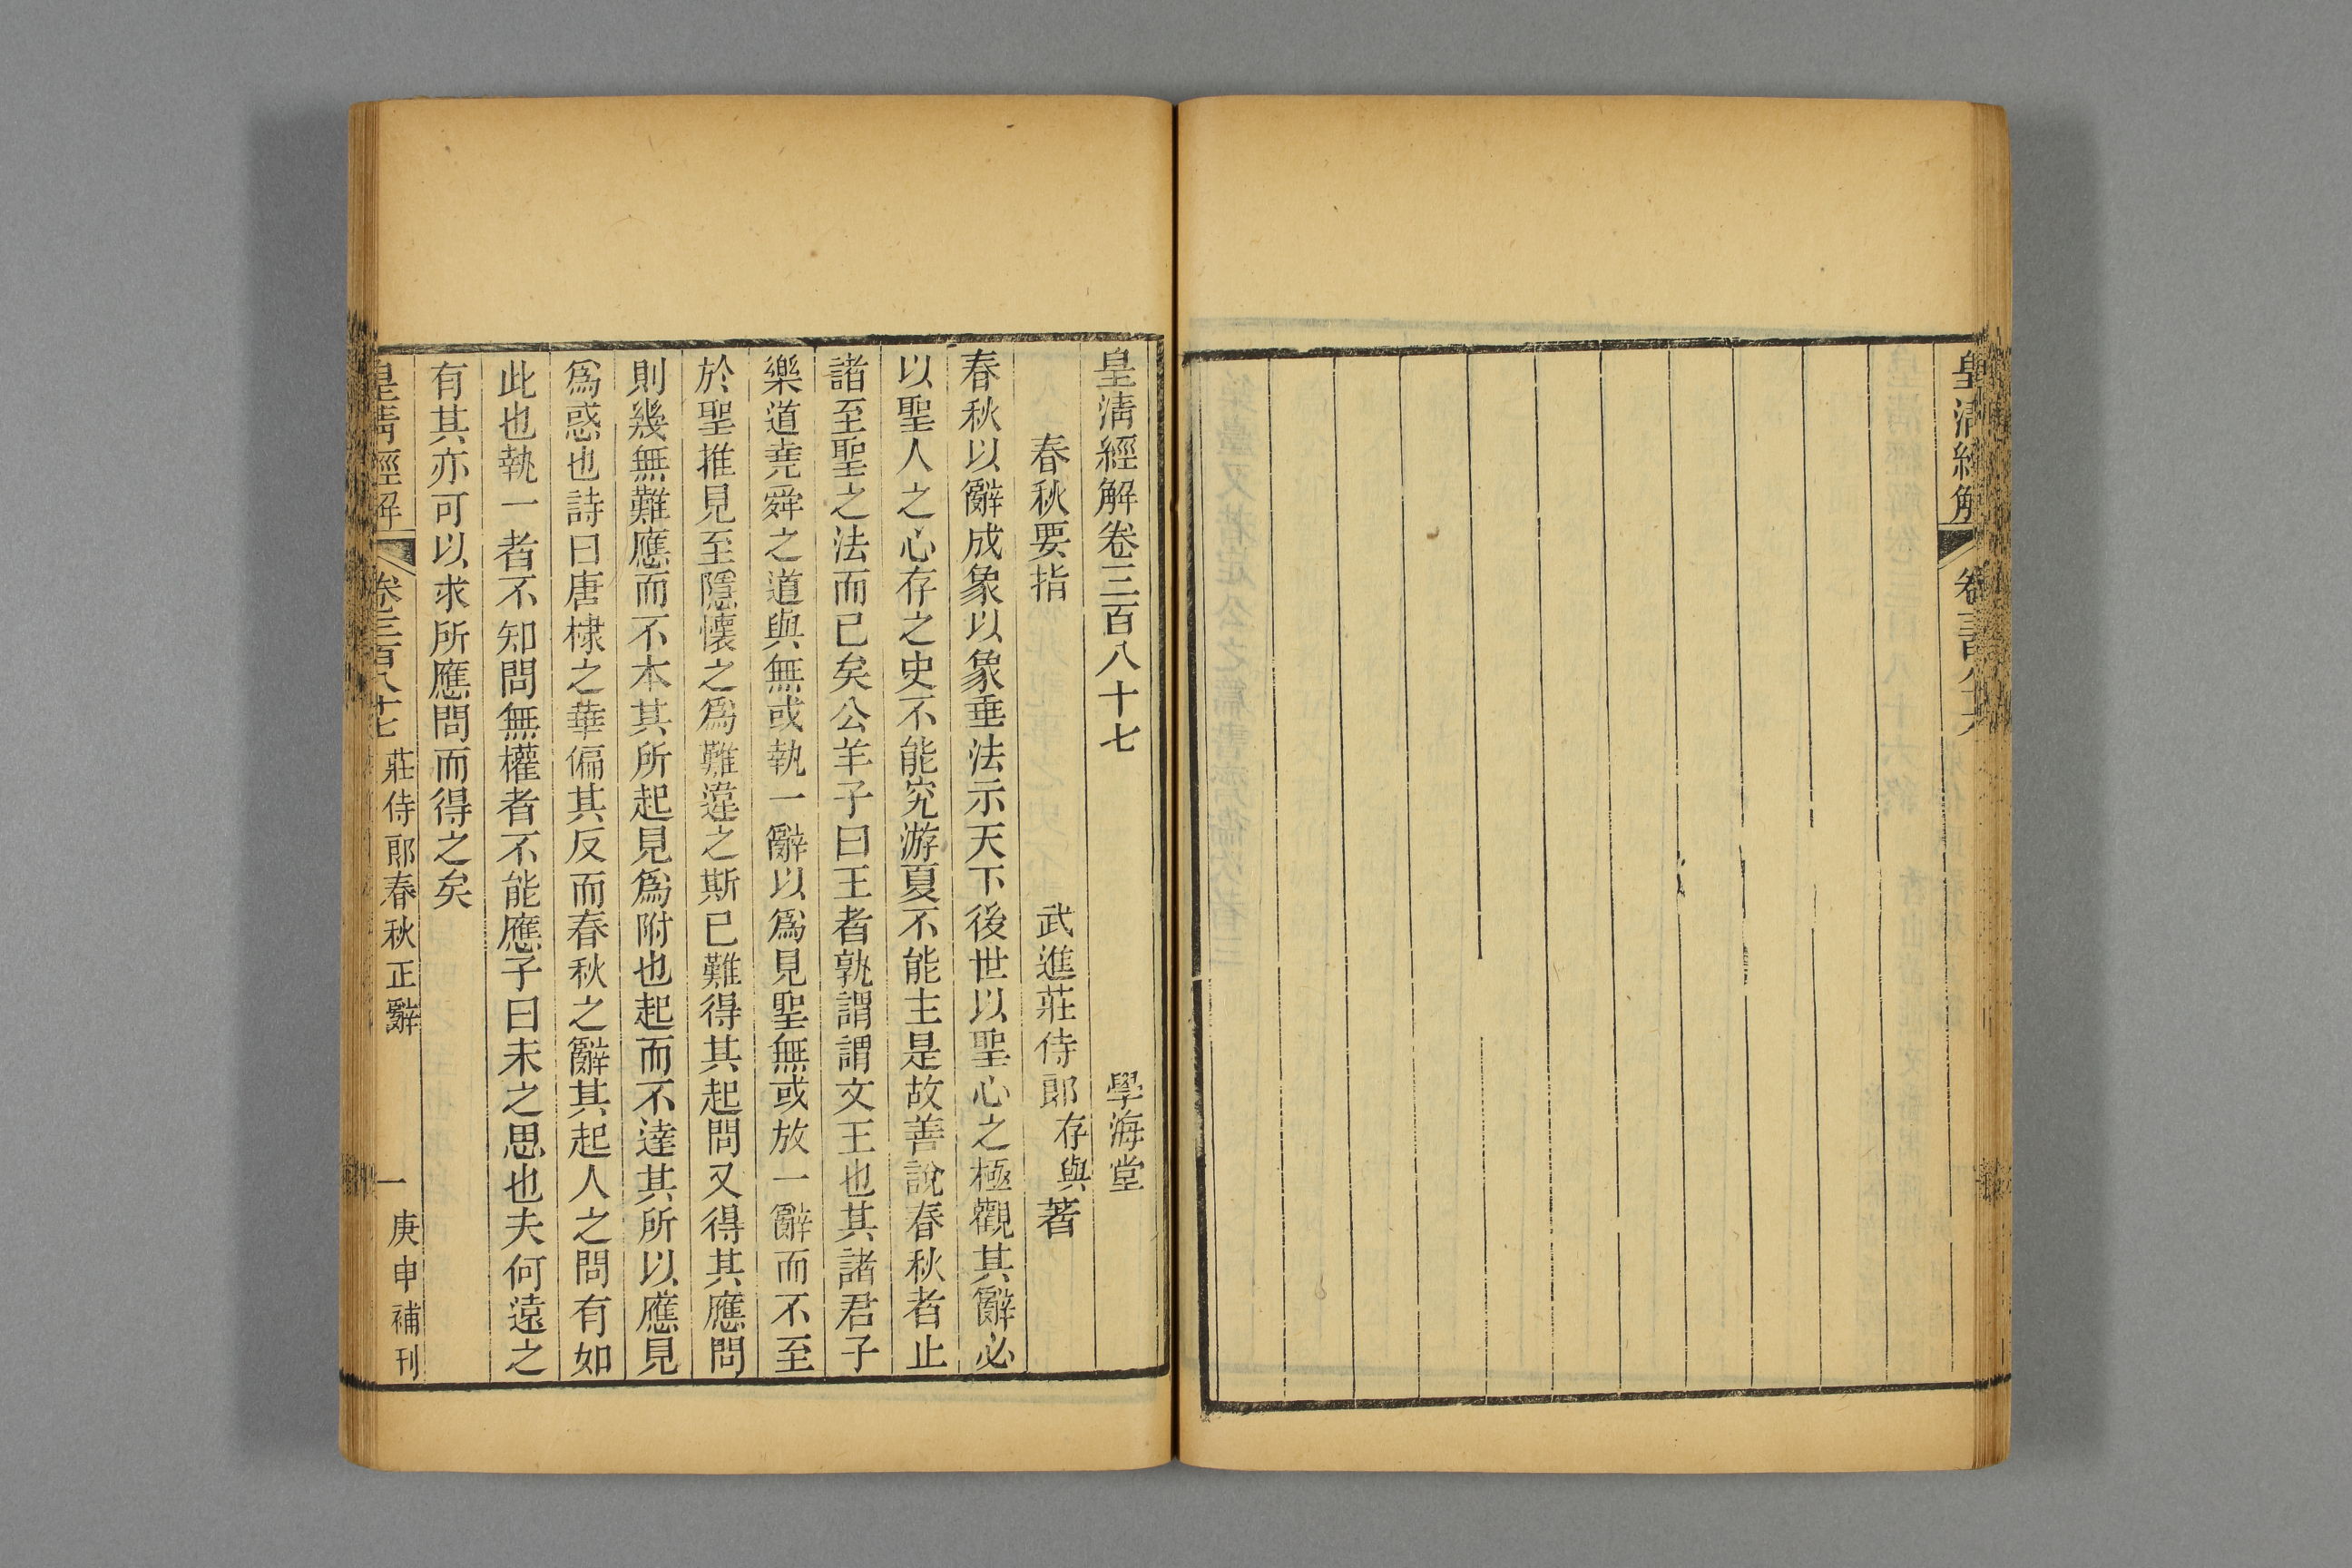 皇清經解
卷三百八十六
皇清經解卷三百八十七 學海堂
春秋要指 武進莊侍郎存與著
春秋以辭成象以象垂法示天下後世以聖心之極觀其辭必
以聖人之心存之史不能究游夏不能主是故善說春秋者止
諸至聖之法而已矣公羊子曰王者孰謂謂文王也其諸君子
樂道堯舜之道與無或執一辭以爲見聖無或放一辭而不至
於聖推見至隱懷之爲難違之斯已難得其起問又得其應問
則幾無難應而不本其所起見爲附也起而不達其所以應見
爲惑也詩曰唐棣之華偏其反而春秋之辭其起人之問有如
此也執一者不知問無權者不能應子曰未之思也夫何遠之
有其亦可以求所應問而得之矣
皇清經解
卷三百八十七
莊侍郎春秋正辭
一
庚申補刊